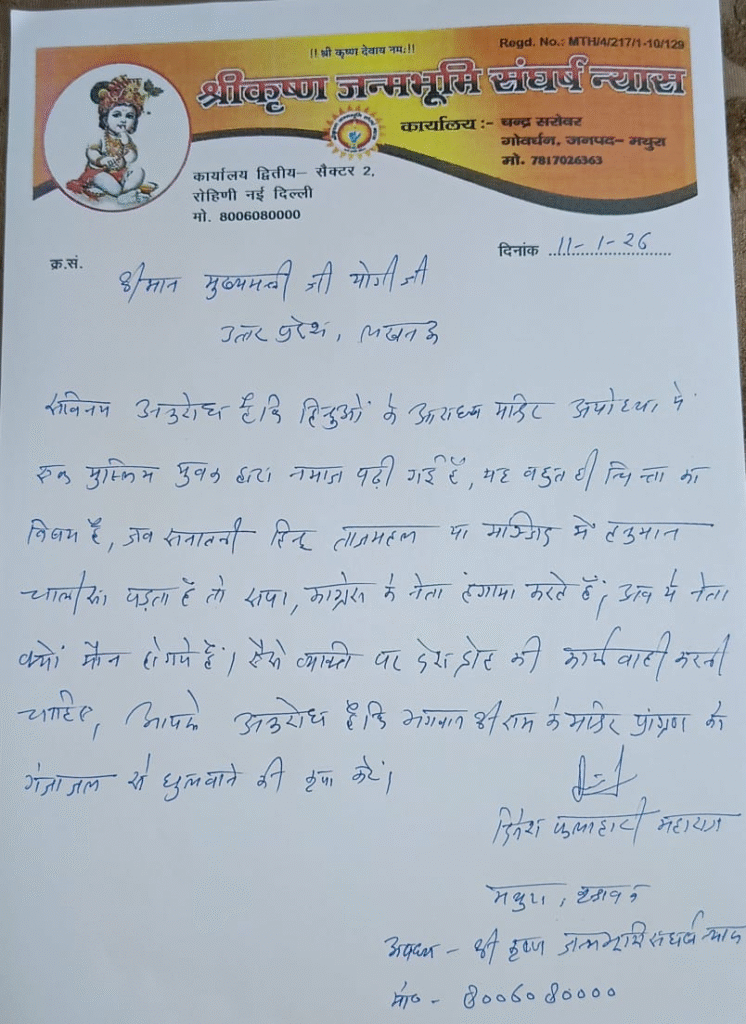 !! श्री कृष्ण देवाय नमः!!
Regd. No.: MTH/4/217/1-10/129
श्रीकृष्ण जन्मभूमि संघर्ष न्यास
कार्यालय :- चन्द्र सरोवर
गोवर्धन, जनपद- मथुरा
मो. 7817026363
कार्यालय द्वितीय- सैक्टर 2,
रोहिणी नई दिल्ली
मो. 8006080000
क्र.सं.
दिनांक 11-1-26
श्रीमान मुख्यमन्त्री जी योगी जी
उत्तर प्रदेश, लखनऊ
सविनय अनुरोध है कि हिन्दुओं के आराध्य मंदिर अयोध्या में
एक मुस्लिम युवक द्वारा नमाज पढ़ी गई है, यह बहुत ही चिन्ता का
विषय है, जब सनातनी हिन्दू ताजमहल या मस्जिद में हनुमान
चालीसा पढ़ता है तो सपा, कांग्रेस के नेता हंगामा करते हैं, अब ये नेता
क्यों मौन हो गये हैं। ऐसे व्यक्ति पर देशद्रोह की कार्यवाही करनी
चाहिए, आपसे अनुरोध है कि भगवान श्री राम के मंदिर प्रांगण को
गंगाजल से धुलवाने की कृपा करें।
दिनेश फलाहारी महाराज
मथुरा, वृन्दावन
अध्यक्ष - श्री कृष्ण जन्मभूमि संघर्ष न्यास
मो० - 8006080000